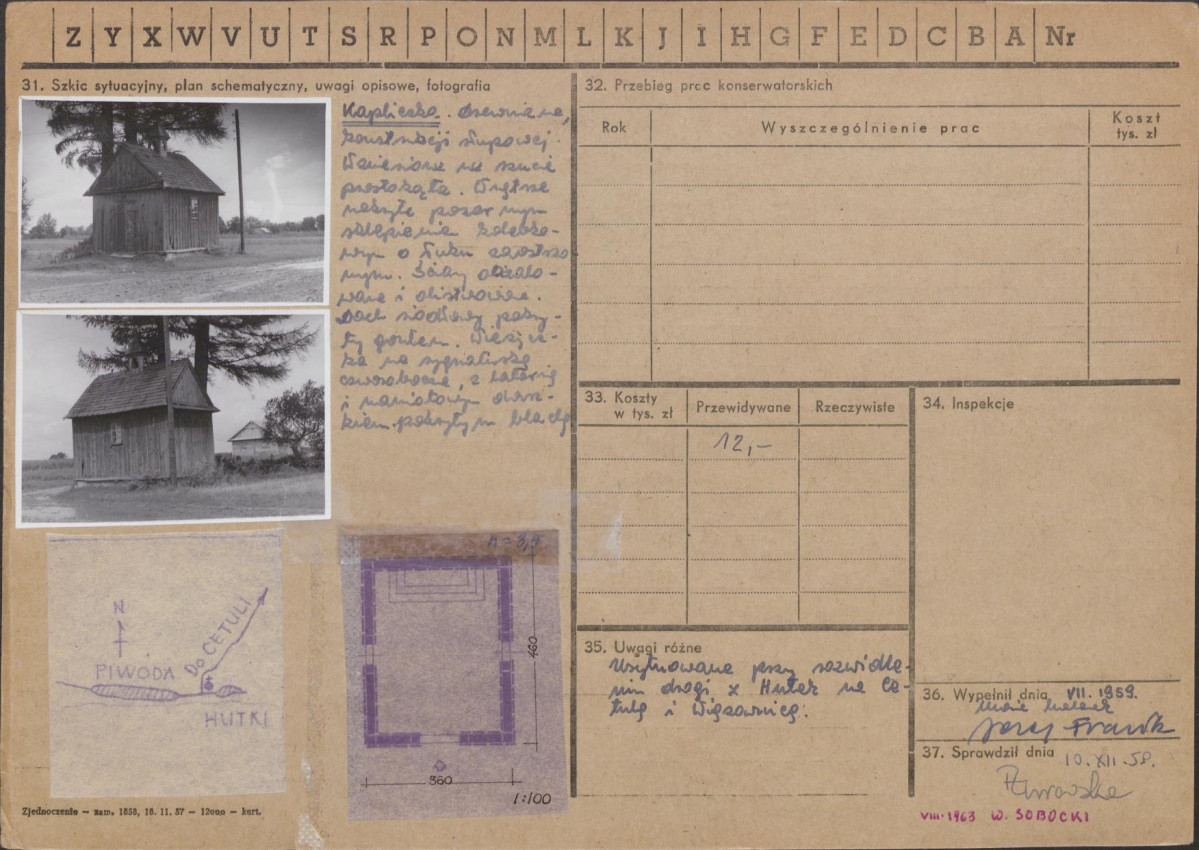 Z Y X W V U T S R P O N M L K J I H G F E D C B A Nr
31. Szkic sytuacyjny, plan schematyczny, uwagi opisowe, fotografia
Kapliczka. Drewniana,
konstrukcji słupowej.
Wzniesiona na rzucie
prostokąta. Wnętrze
nakryte pozornym
sklepieniem kolebko-
wym o łuku
Ściany oszalo-
wane i olistwowane.
Dach siodłowy pokry-
ty gontem. Wieżycz-
ka na sygnaturkę
czworoboczna, z latarnią
i namiotowym dasz-
kiem pokrytym blachą
N
PIWODA
DO CETULI
HUTKI
h = 3,
460
360
1:100
Zjednoczenie — zam. 1858, 18. 11. 57 — 12000 — kart.
32. Przebieg prac konserwatorskich
Rok
Wyszczególnienie prac
Koszt
tys. zł
33. Koszty
w tys. zł
Przewidywane
Rzeczywiste
12,-
34. Inspekcje
35. Uwagi różne
Usytuowana przy rozwidle-
niu drogi z Hutek na Ce-
tulę i Wiązownicę.
36. Wypełnił dnia VII. 1959.
Jerzy Frank
37. Sprawdził dnia 10. XII. 59.
VIII-1963 W. SOBOCKI